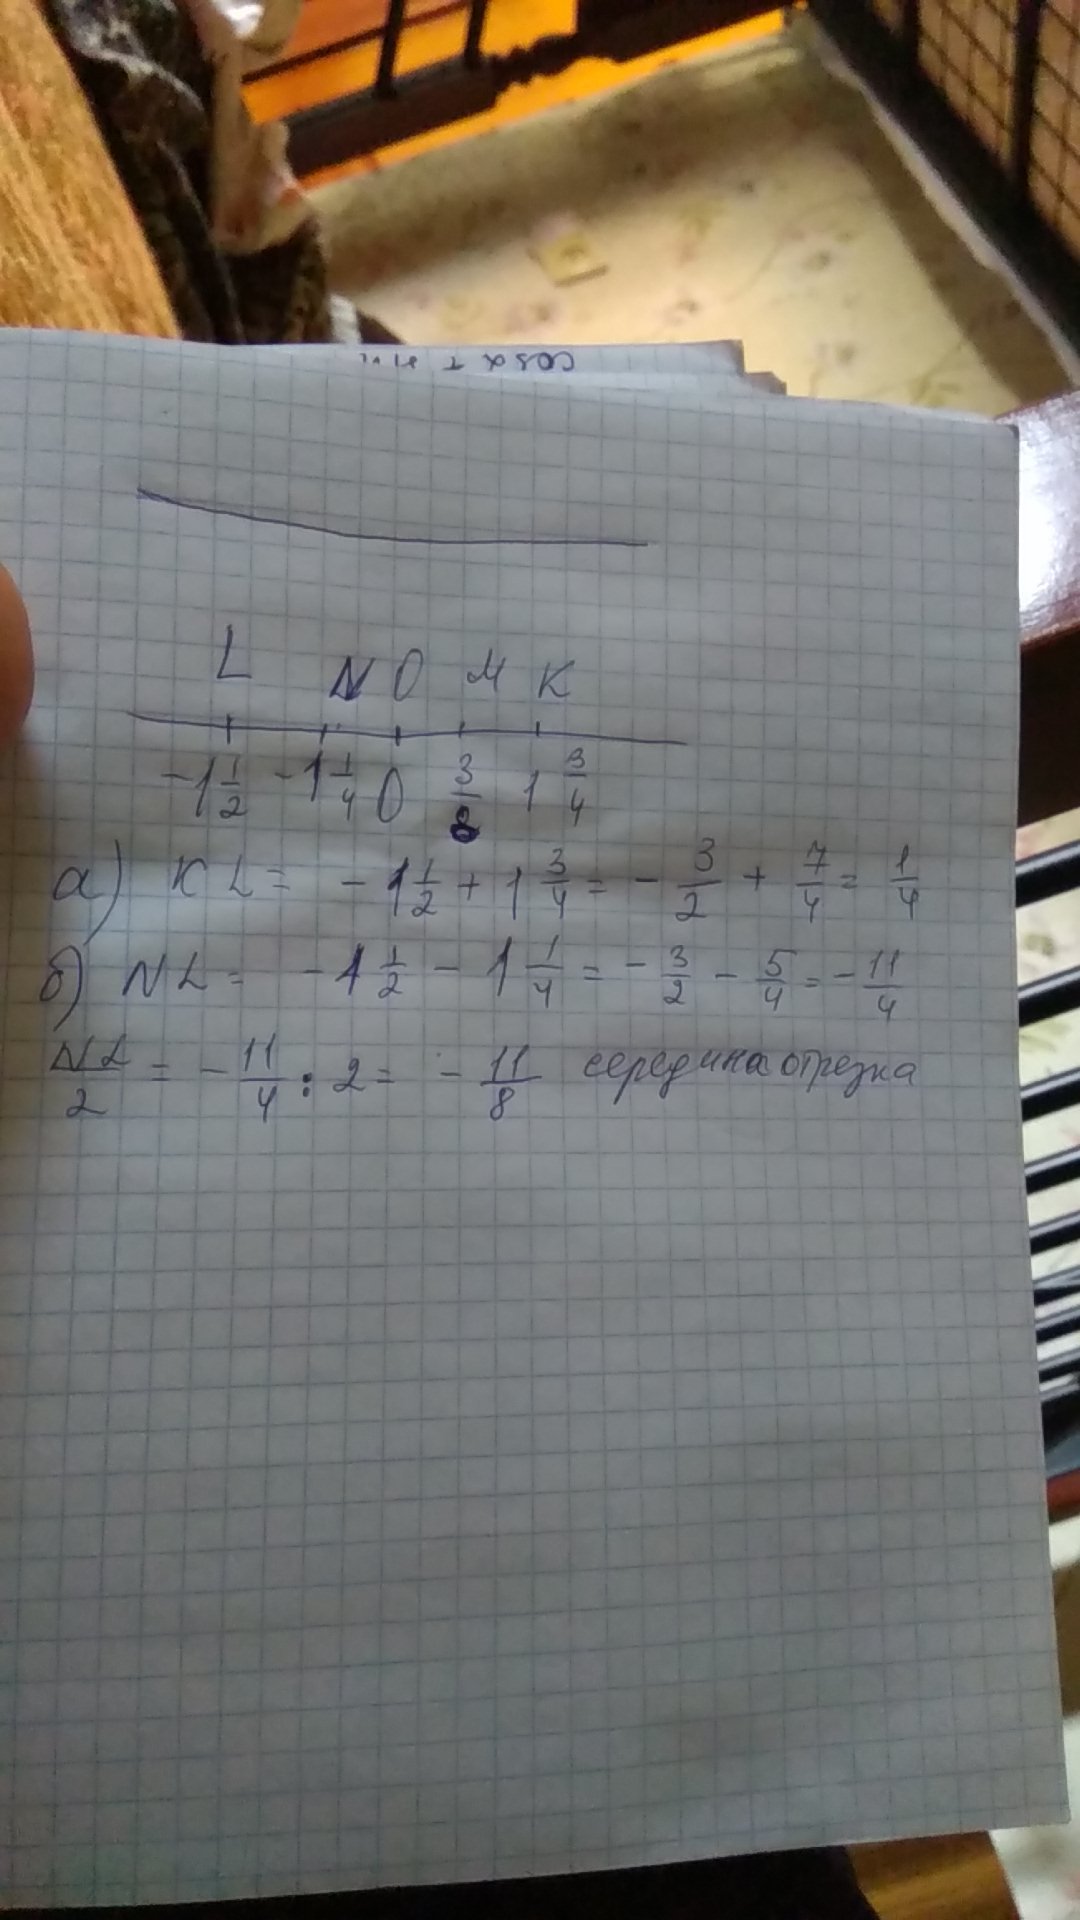 L N O M K
-1 1/2 -1 1/4 0 3/8 1 3/4
а) KL = -1 1/2 + 1 3/4 = - 3/2 + 7/4 = 1/4
б) NL = -1 1/2 - 1 1/4 = - 3/2 - 5/4 = - 11/4
NL/2 = - 11/4 : 2 = - 11/8 середина отрезка